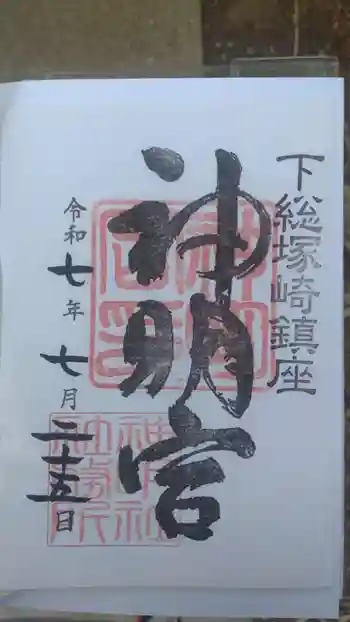 下総塚崎鎮座
神明宮
令和七年七月二十五日